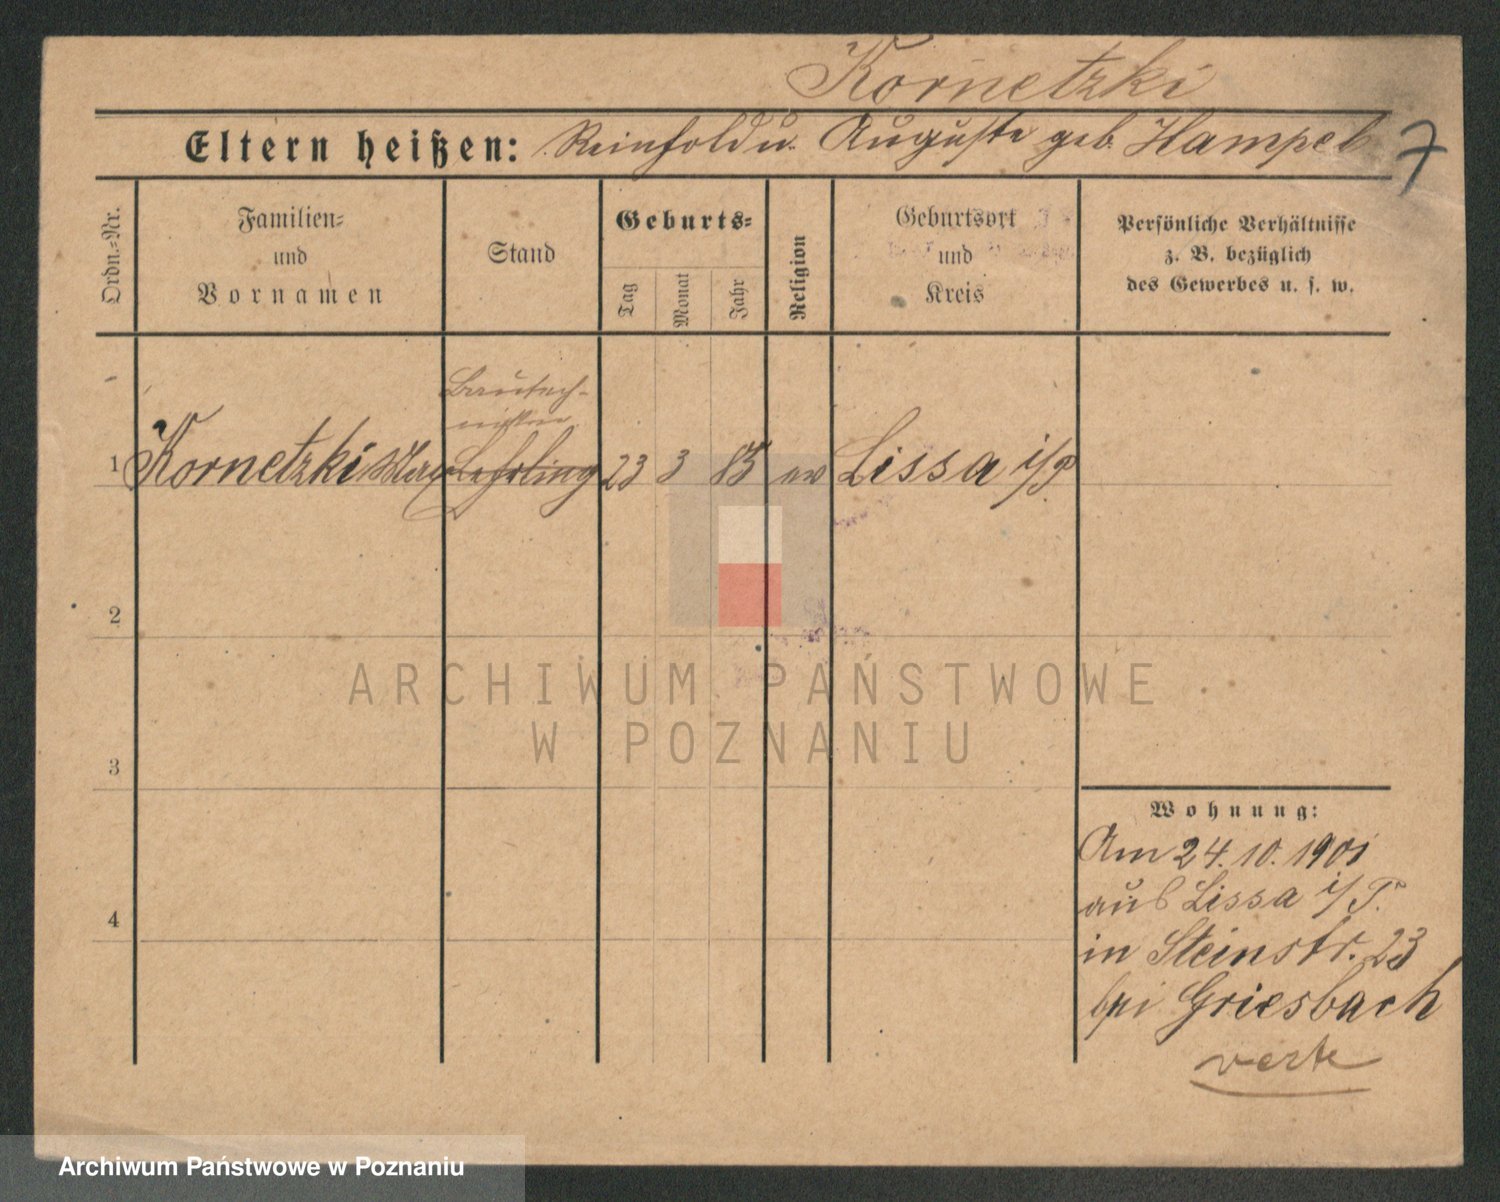 Kornetzki
Eltern heißen: Reinhold u. Auguste geb. Hampel
7
Ordn.=Nr.
Familien=
und
Vornamen
Stand
Geburts=
Tag
Monat
Jahr
Religion
Geburtsort
und
Kreis
Persönliche Verhältnisse
z. B. bezüglich
des Gewerbes u. s. w.
Bautech-
niker
1 Kornetzki Max Lehrling 23 3 85 ev Lissa i/P
2
3
4
Wohnung:
Am 24. 10. 1901
aus Lissa i/P.
in Steinstr. 23
bei Griesbach
verte
ARCHIWUM PAŃSTWOWE
W POZNANIU
Archiwum Państwowe w Poznaniu